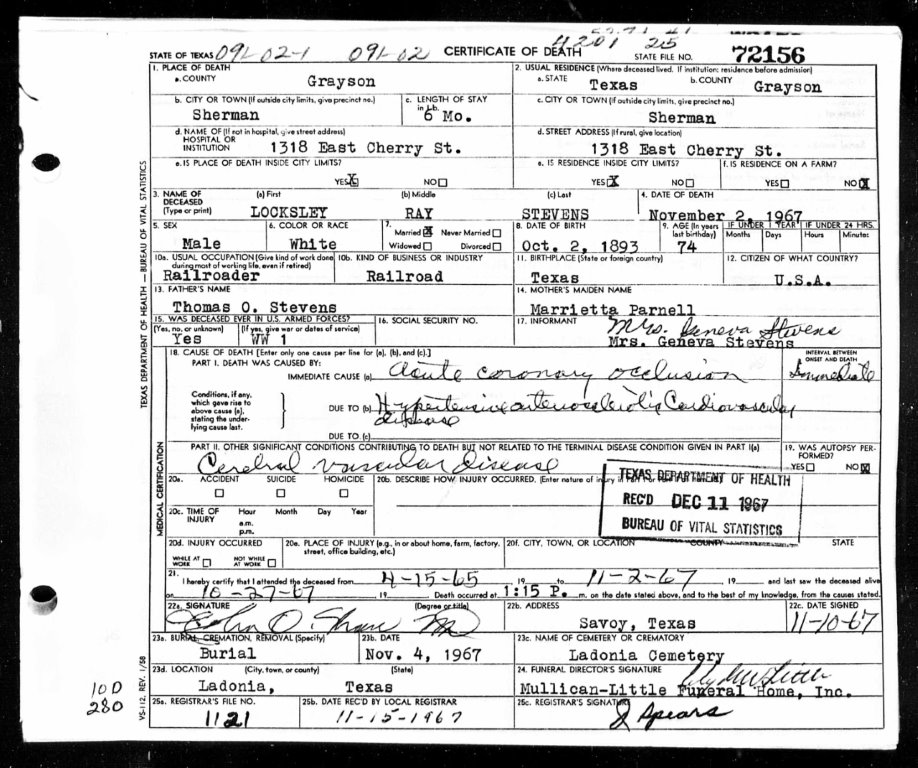 STATE OF TEXAS 091-02-1 091-02 CERTIFICATE OF DEATH 4201 25 STATE FILE NO. 72156
1. PLACE OF DEATH
a. COUNTY Grayson
2. USUAL RESIDENCE (Where deceased lived. If institution: residence before admission)
a. STATE Texas b. COUNTY Grayson
b. CITY OR TOWN (If outside city limits, give precinct no.) Sherman
c. LENGTH OF STAY in 1b. 6 Mo.
c. CITY OR TOWN (If outside city limits, give precinct no.) Sherman
d. NAME OF (If not in hospital, give street address) HOSPITAL OR INSTITUTION 1318 East Cherry St.
d. STREET ADDRESS (If rural, give location) 1318 East Cherry St.
e. IS PLACE OF DEATH INSIDE CITY LIMITS? YES☒ NO☐
e. IS RESIDENCE INSIDE CITY LIMITS? YES☒ NO☐
f. IS RESIDENCE ON A FARM? YES☐ NO☒
3. NAME OF DECEASED (Type or print)
(a) First LOCKSLEY (b) Middle RAY (c) Last STEVENS
4. DATE OF DEATH November 2, 1967
5. SEX Male
6. COLOR OR RACE White
7. Married☒ Never Married☐ Widowed☐ Divorced☐
8. DATE OF BIRTH Oct. 2, 1893
9. AGE (In years last birthday) 74
IF UNDER 1 YEAR Months Days
IF UNDER 24 HRS. Hours Minutes
10a. USUAL OCCUPATION (Give kind of work done during most of working life, even if retired) Railroader
10b. KIND OF BUSINESS OR INDUSTRY Railroad
11. BIRTHPLACE (State or foreign country) Texas
12. CITIZEN OF WHAT COUNTRY? U.S.A.
13. FATHER'S NAME Thomas O. Stevens
14. MOTHER'S MAIDEN NAME Marrietta Parnell
15. WAS DECEASED EVER IN U.S. ARMED FORCES? (Yes, no, or unknown) Yes (If yes, give war or dates of service) WW 1
16. SOCIAL SECURITY NO.
17. INFORMANT Mrs. Geneva Stevens
Mrs. Geneva Stevens
18. CAUSE OF DEATH [Enter only one cause per line for (a), (b), and (c).]
PART I. DEATH WAS CAUSED BY:
IMMEDIATE CAUSE (a) Acute coronary occlusion
INTERVAL BETWEEN ONSET AND DEATH Immediate
Conditions, if any, which gave rise to above cause (a), stating the underlying cause last.
DUE TO (b) Hypertensive arteriosclerotic Cardiovascular disease
DUE TO (c)
PART II. OTHER SIGNIFICANT CONDITIONS CONTRIBUTING TO DEATH BUT NOT RELATED TO THE TERMINAL DISEASE CONDITION GIVEN IN PART I(a)
Cerebral vascular disease
19. WAS AUTOPSY PERFORMED? YES☐ NO☒
20a. ACCIDENT ☐ SUICIDE ☐ HOMICIDE ☐
20b. DESCRIBE HOW INJURY OCCURRED. (Enter nature of injury
TEXAS DEPARTMENT OF HEALTH
REC'D DEC 11 1967
BUREAU OF VITAL STATISTICS
20c. TIME OF INJURY Hour a.m. p.m. Month Day Year
20d. INJURY OCCURRED WHILE AT WORK ☐ NOT WHILE AT WORK ☐
20e. PLACE OF INJURY (e.g., in or about home, farm, factory, street, office building, etc.)
20f. CITY, TOWN, OR LOCATION COUNTY STATE
21. I hereby certify that I attended the deceased from 4-15-65 19 to 11-2-67 19 and last saw the deceased alive
on 10-27-67 19 Death occurred at 1:15 P. m. on the date stated above, and to the best of my knowledge, from the causes stated.
22a. SIGNATURE (Degree or title)
22b. ADDRESS Savoy, Texas
22c. DATE SIGNED 11-10-67
23a. BURIAL, CREMATION, REMOVAL (Specify) Burial
23b. DATE Nov. 4, 1967
23c. NAME OF CEMETERY OR CREMATORY Ladonia Cemetery
23d. LOCATION (City, town, or county) Ladonia, (State) Texas
24. FUNERAL DIRECTOR'S SIGNATURE
Mullican-Little Funeral Home, Inc.
25a. REGISTRAR'S FILE NO. 1121
25b. DATE REC'D BY LOCAL REGISTRAR 11-15-1967
25c. REGISTRAR'S SIGNATURE J Spears
TEXAS DEPARTMENT OF HEALTH — BUREAU OF VITAL STATISTICS
MEDICAL CERTIFICATION
VS-112, REV. 1/58
10D
280